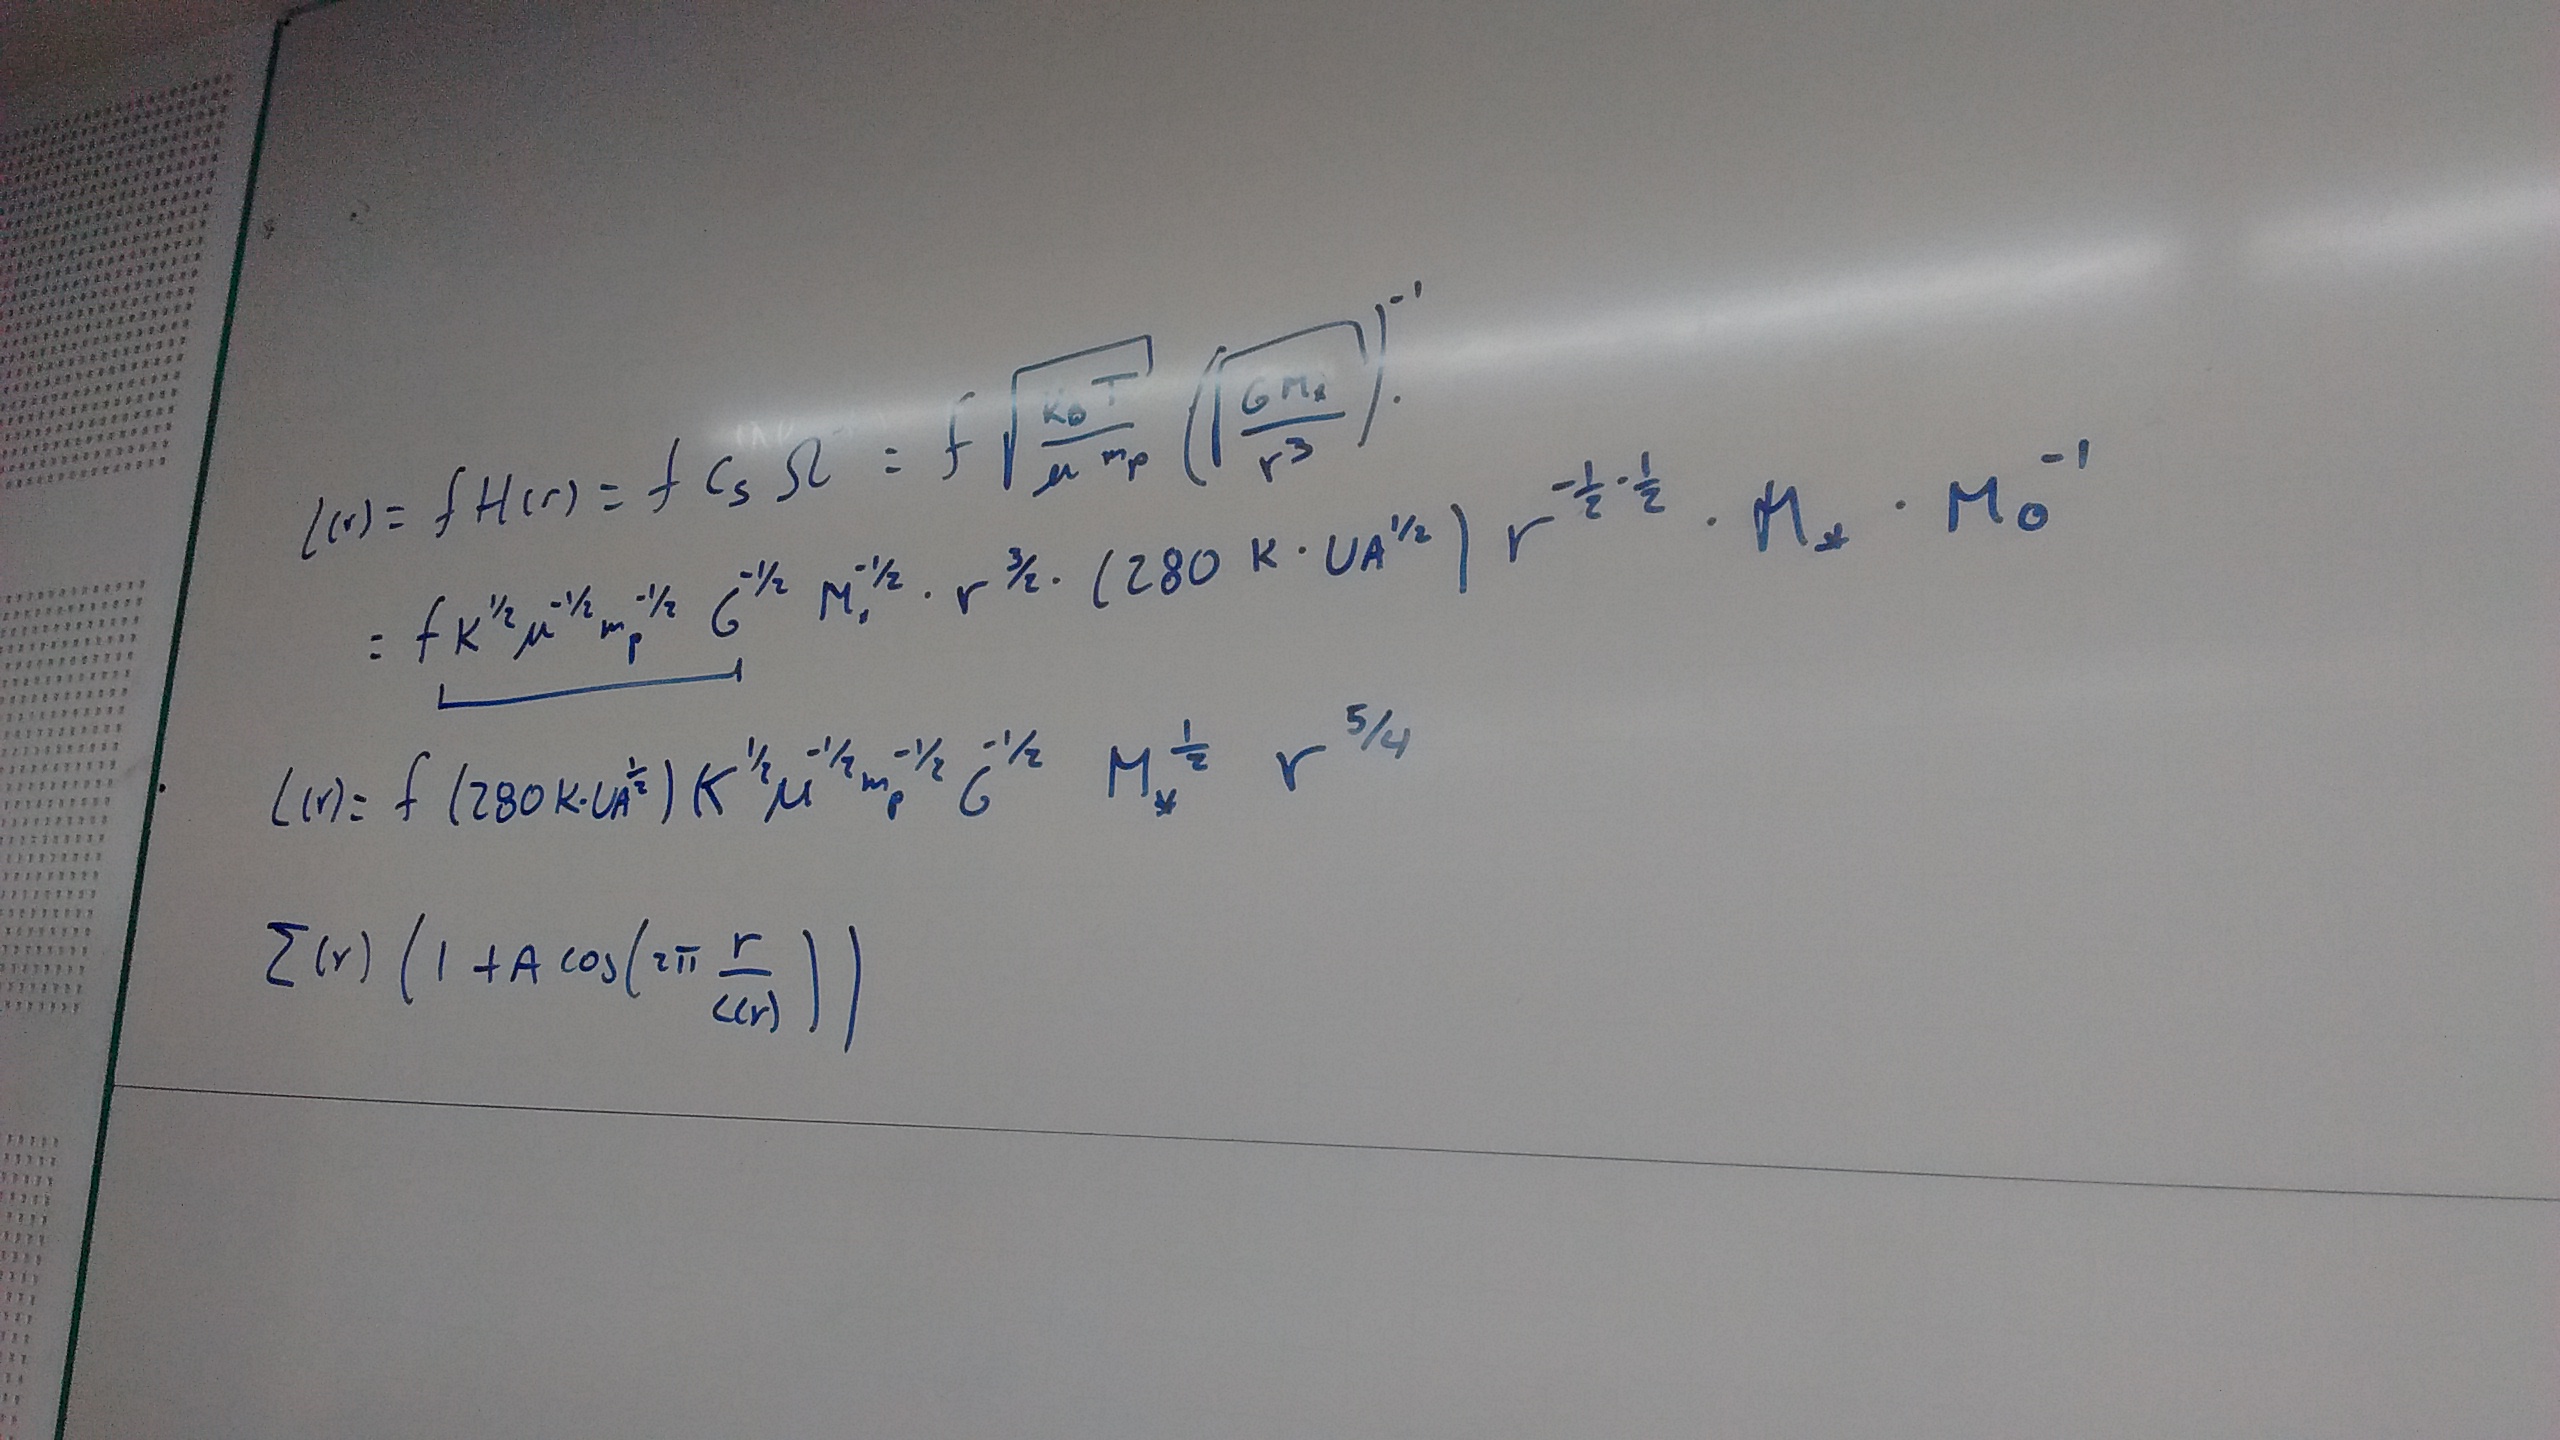 L(r) = f H(r) = f c_s Ω^-1 = f √(k_B T / μ m_p) (√(G M_* / r^3))^-1 .
= f K^1/2 μ^-1/2 m_p^-1/2 G^-1/2 M_*^-1/2 · r^3/2 · (280 K · UA^1/2) r^(-1/2 · 1/2) · M_* · M_⊙^-1
L(r) = f (280 K·UA^1/2) K^1/2 μ^-1/2 m_p^-1/2 G^-1/2 M_*^1/2 r^5/4
Σ(r) (1 + A cos(2π r / L(r)))